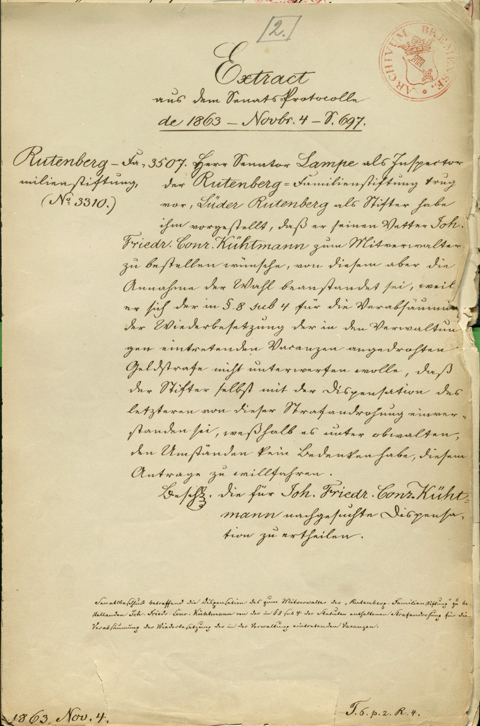 [2.]
ARCHIVUM BREMENSE.
Extract
aus dem Senats Protocolle
de 1863 – Novbr. 4 – S. 697.
Rutenberg – Fa-
milienstiftung,
(No 3310.)
3507. Herr Senator Lampe als Inspector
der Rutenberg-Familienstiftung trug
vor, Lüder Rutenberg als Stifter habe
ihm vorgestellt, daß er seinen Vetter Joh.
Friedr. Conr. Kühtmann zum Mitverwalter
zu bestellen wünsche, von diesem aber die
Annahme der Wahl beanstandet sei, weil
er sich der in §. 8 sub 4 für die Verabsäumung
der Wiederbesetzung der in den Verwaltun-
gen eintretenden Vacanzen angedrohten
Geldstrafe nicht unterwerfen wolle, daß
der Stifter selbst mit der Dispensation des
letzteren von dieser Strafandrohung einver-
standen sei, weßhalb es unter obwalten-
den Umständen kein Bedenken habe, diesem
Antrage zu willfahren.
Beschl. die für Joh. Friedr. Conr. Küht-
mann nachgesuchte Dispensa-
tion zu ertheilen.
Senatsbeschluß betreffend die Dispensation des zum Mitverwalter der „Rutenberg-Familienstiftung" zu be-
stellenden Joh. Friedr. Conr. Kühtmann von der in §8 sub 4 der Statuten enthaltenen Strafandrohung für die
Verabsäumung der Wiederbesetzung der in der Verwaltung eintretenden Vacanzen.
1863. Nov. 4.
T. 6. p. 2. R. 4.